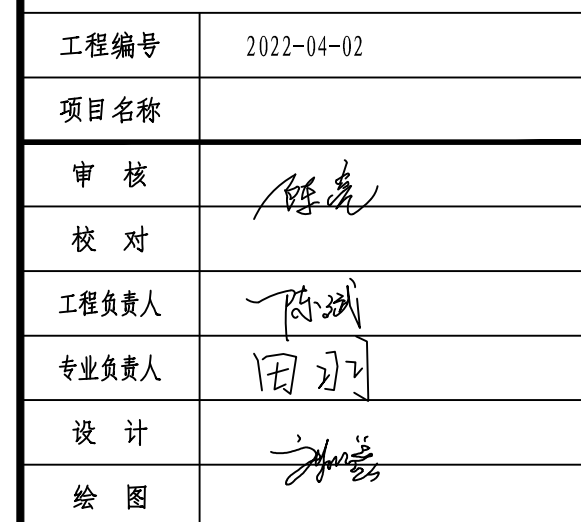 工程编号 2022-04-02
项目名称
审 核
校 对
工程负责人 陈斌
专业负责人 田羽
设 计
绘 图